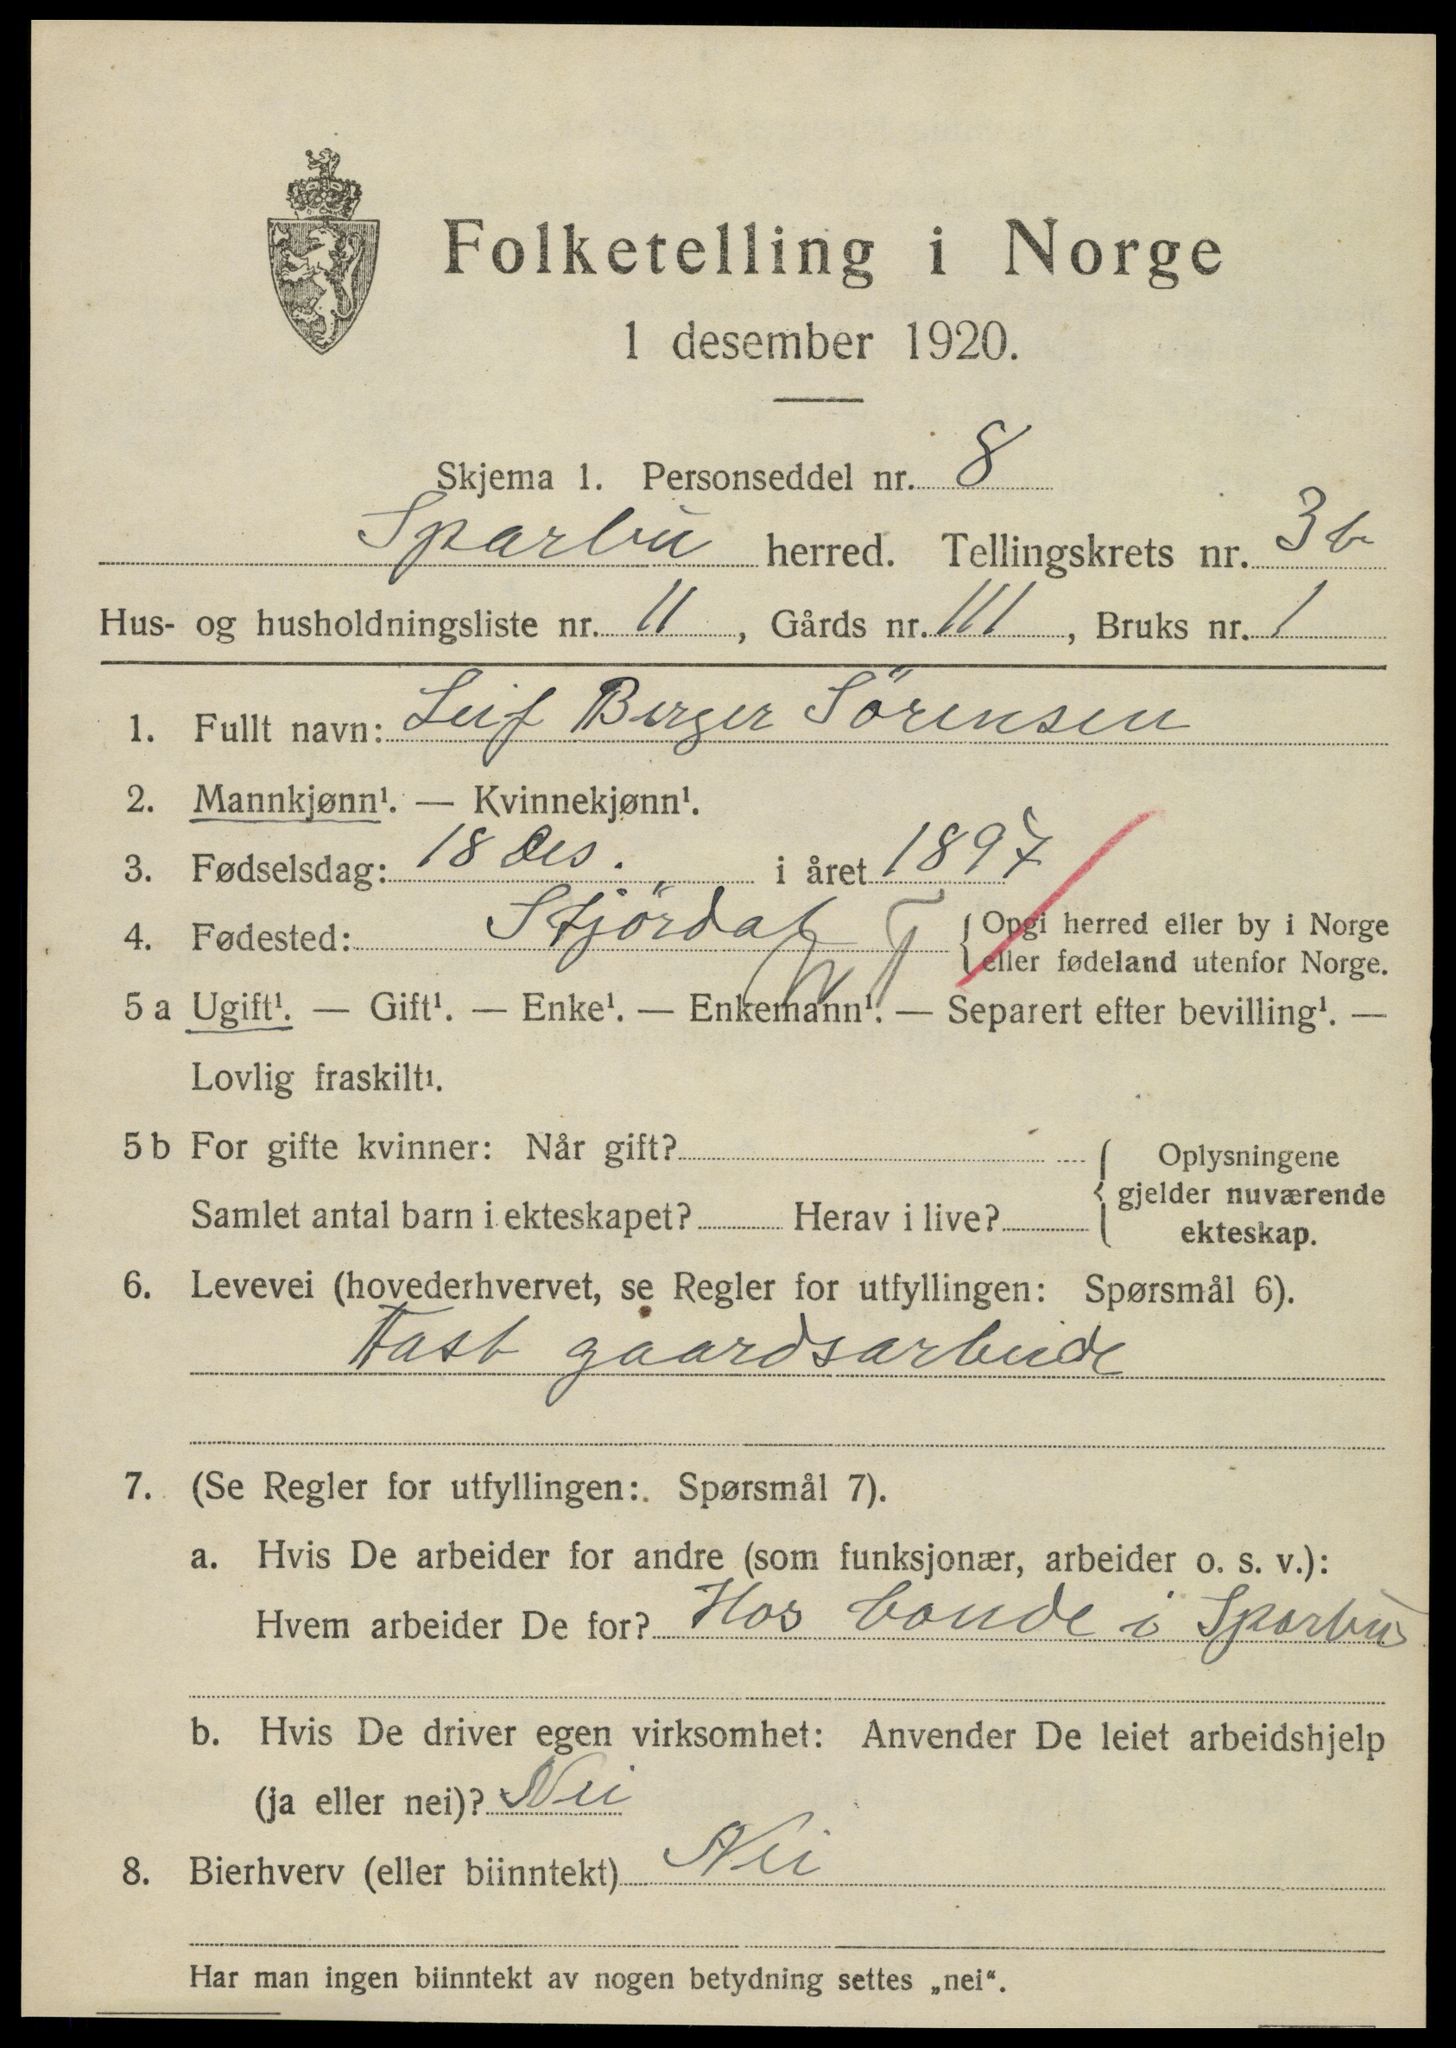 Folketelling i Norge
1 desember 1920.
Skjema 1. Personseddel nr. 8
Sparbu herred. Tellingskrets nr. 3b
Hus- og husholdningsliste nr. 11, Gårds nr. 111, Bruks nr. 1
1. Fullt navn: Leif Berger Sörensen
2. Mannkjønn¹. — Kvinnekjønn¹.
3. Fødselsdag: 18 des. i året 1897
4. Fødested: Stjördal {Opgi herred eller by i Norge
eller fødeland utenfor Norge.
N T
5 a Ugift¹. — Gift¹. — Enke¹. — Enkemann¹. — Separert efter bevilling¹. —
Lovlig fraskilt¹.
5 b For gifte kvinner: Når gift? { Oplysningene
gjelder nuværende
Samlet antal barn i ekteskapet? Herav i live? ekteskap.
6. Levevei (hovederhvervet, se Regler for utfyllingen: Spørsmål 6).
Fast gaardsarbeide
7. (Se Regler for utfyllingen: Spørsmål 7).
a. Hvis De arbeider for andre (som funksjonær, arbeider o. s. v.):
Hvem arbeider De for? Hos bonde i Sparbu
b. Hvis De driver egen virksomhet: Anvender De leiet arbeidshjelp
(ja eller nei)? Nei
8. Bierhverv (eller biinntekt) Nei
Har man ingen biinntekt av nogen betydning settes „nei“.